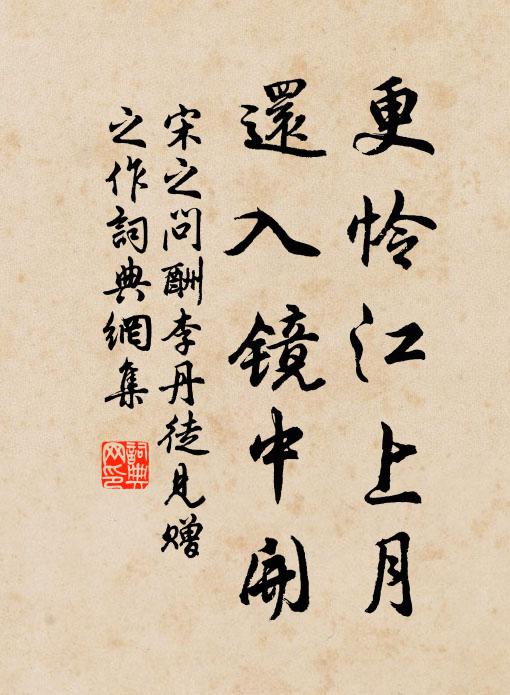 更怜江上月
還入镜中開
宋之问酬李丹徒見贈
之作詞典網集
詞典
网印